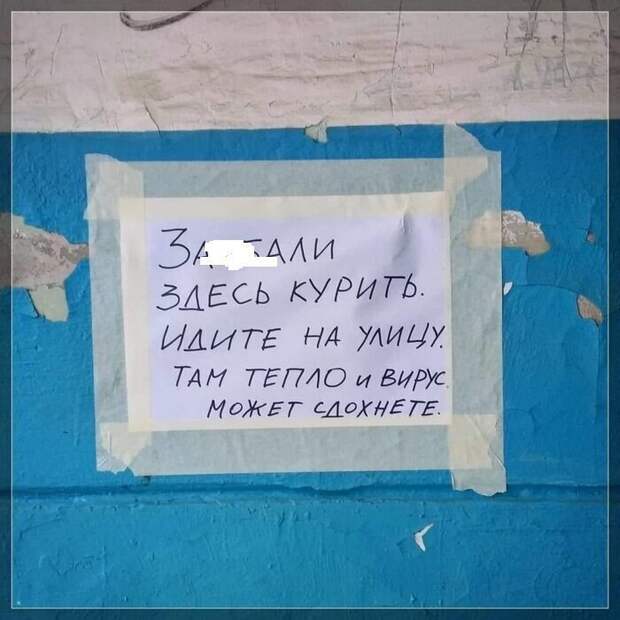 ЗДЕСЬ КУРИТЬ.
ИДИТЕ НА УЛИЦУ.
ТАМ ТЕПЛО И ВИРУС.
МОЖЕТ СДОХНЕТЕ.